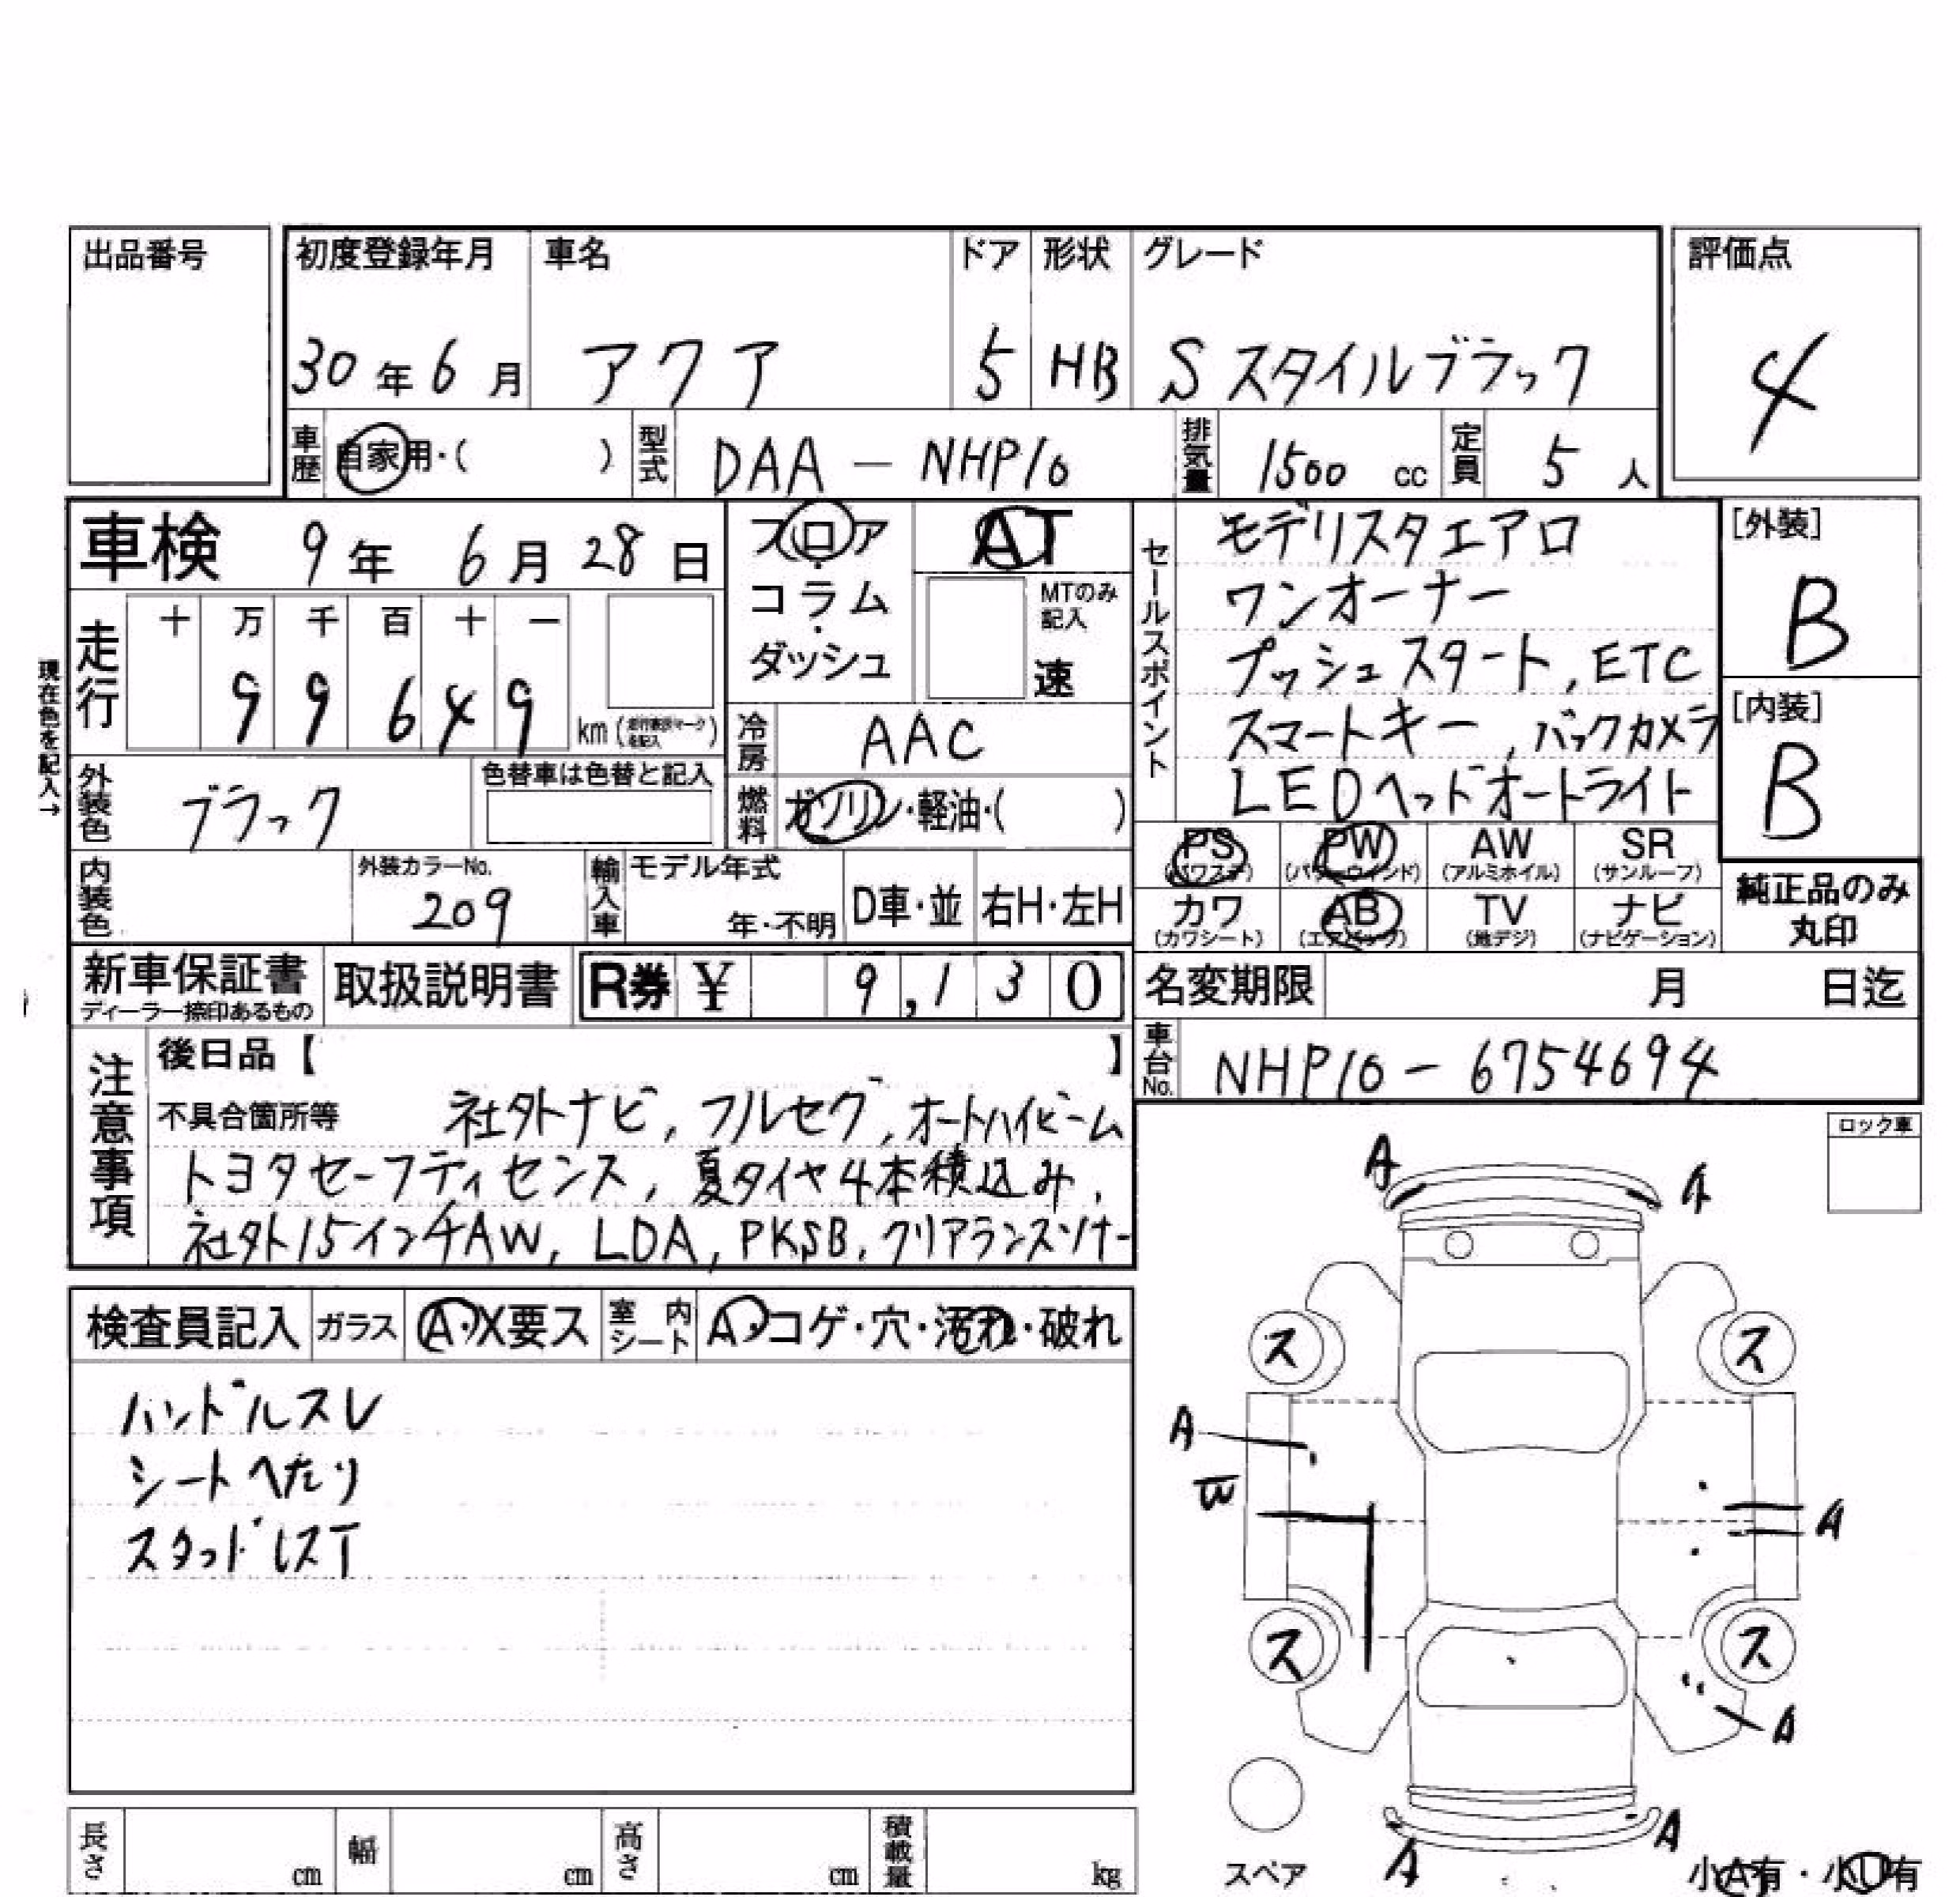 出品番号
初度登録年月 車名 ドア 形状 グレード 評価点
30年6月 アクア 5 HB Sスタイルブラック 4
車歴 自家用・( ) 型式 DAA-NHP10 排気量 1500 cc 定員 5 人
車検 9年 6月 28日
フロア・コラム・ダッシュ
AT
MTのみ記入
速
走行 十 万 千 百 十 一
99649 km
現在色を記入→
冷房 AAC
燃料 ガソリン・軽油・( )
外装色 ブラック 色替車は色替と記入
内装色 外装カラーNo. 209 輸入車 モデル年式 年・不明 D車・並 右H・左H
セールスポイント
モデリスタエアロ
ワンオーナー
プッシュスタート,ETC
スマートキー,バックカメラ
LEDヘッドオートライト
[外装]
B
[内装]
B
PS AW SR PW
(パワステ) (パワーウインド) (アルミホイル) (サンルーフ)
カワ AB TV ナビ
(カワシート) (エアバック) (地デジ) (ナビゲーション)
純正品のみ
丸印
新車保証書 取扱説明書 R券 ¥ 9,130
ディーラー捺印あるもの
名変期限 月 日迄
車台No. NHP10-6754694
注意事項
後日品【 】
不具合箇所等 社外ナビ,フルセグ,オートハイビーム
トヨタセーフティセンス,夏タイヤ4本積込み,
社外15インチAW,LDA,PKSB,クリアランスソナー
ロック車
検査員記入 ガラス A・X要ス 室内シート A・コゲ・穴・汚れ・破れ
ハンドルスレ
シートへたり
スタッドレスT
A A
ス ス
A
W
A
ス ス
A
A A
スペア
小A有・小U有
長さ cm 幅 cm 高さ cm 積載量 kg